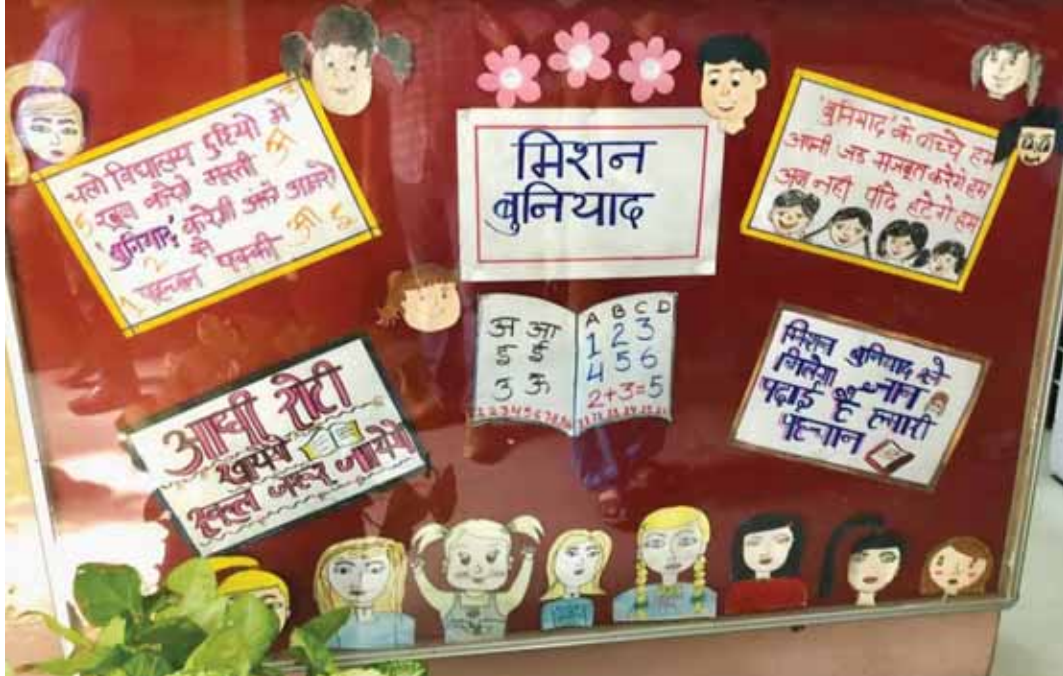 मिशन
बुनियाद
चलो विद्यालय छुट्टियो में
खुब करेगे मस्ती
'बुनियाद' करेगी अंको अक्षरो
की
पहचान पक्की
'बुनियाद' के बच्चे हम
अपनी जड मजबूत करेगे हम
अब नही पीछे हटेगे हम
अ आ
इ ई
उ ऊ
A B C D
1 2 3
4 5 6
2+3=5
आधी रोटी
खायेगे
स्कूल जरूर जायेगे
मिशन बुनियाद से
मिलेगा ज्ञान
पढाई है हमारी
पहचान